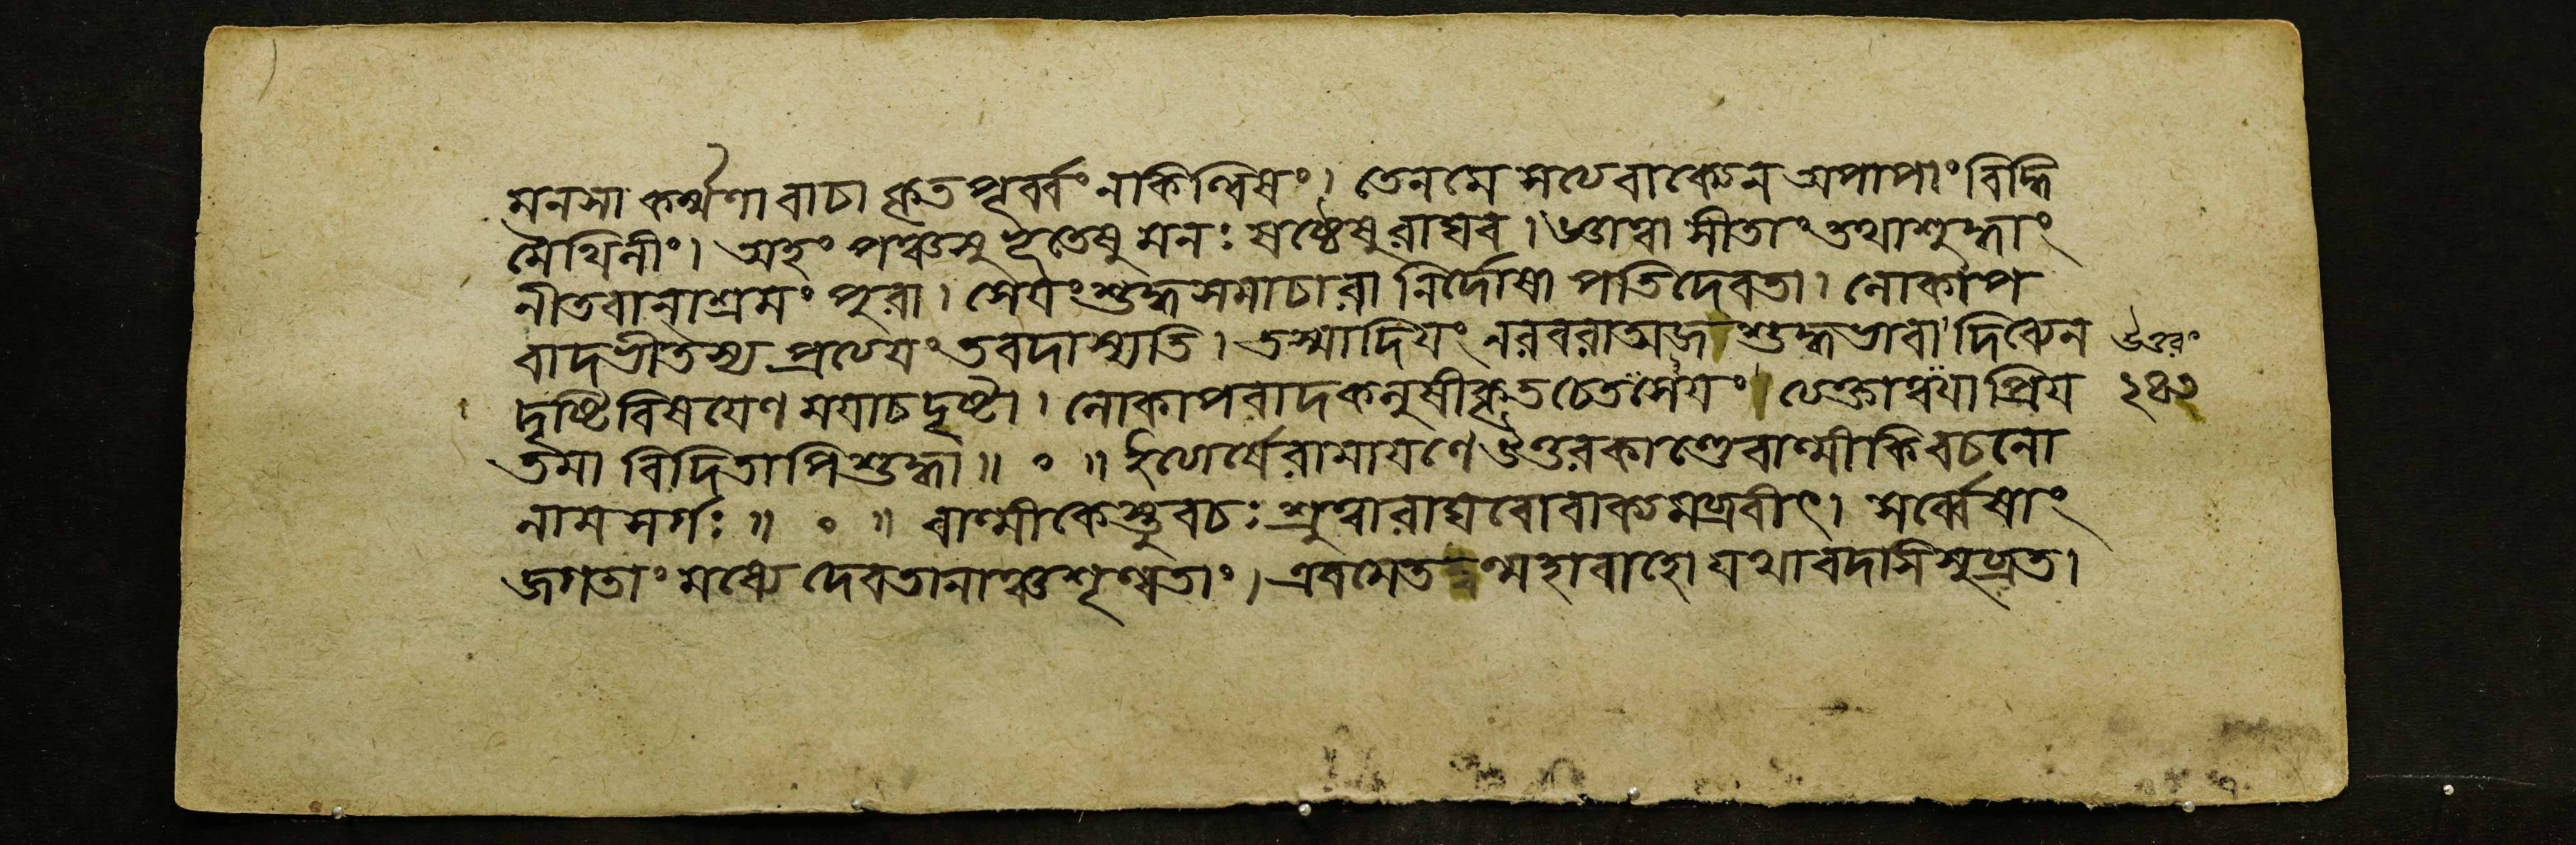 মনসা কর্ম্মণা বাচা কৃতপূর্ব্বং ন কিল্বিষং। তেন মে সত্যবাক্যেন অপাপাং বিদ্ধি
মৈথিলীং। অহং পঞ্চসু ভূতেষু মনঃ ষষ্ঠেষু রাঘব। জ্ঞাত্বা সীতাং তথা শুদ্ধাং
নীতবানাশ্রমং পুরা। সেয়ং শুদ্ধসমাচারা নির্দোষা পতিদেবতা। লোকাপ
বাদভীতস্য প্রত্যয়ং তব দাস্যতি। তস্মাদিয়ং নরবরাত্মজ শুদ্ধভাবা দিব্যেন
দৃষ্টিবিষয়েণ ময়া চ দৃষ্টা। লোকাপবাদকলুষীকৃতচেতসেয়ং ত্যক্তা ত্বয়া প্রিয়
তমা বিদিতাপি শুদ্ধা॥ ॰ ॥ ইত্যার্ষে রামায়ণে উত্তরকাণ্ডে বাল্মীকিবচনো
নাম সর্গঃ॥ ॰ ॥ বাল্মীকেস্তু বচঃ শ্রুত্বা রাঘবো বাক্যমব্রবীৎ। সর্ব্বেষাং
জগতাং মধ্যে দেবতানাঞ্চ শৃণ্বতাং। এবমেতন্মহাবাহো যথা বদসি সুব্রত।
উত্তরং
২৪৩